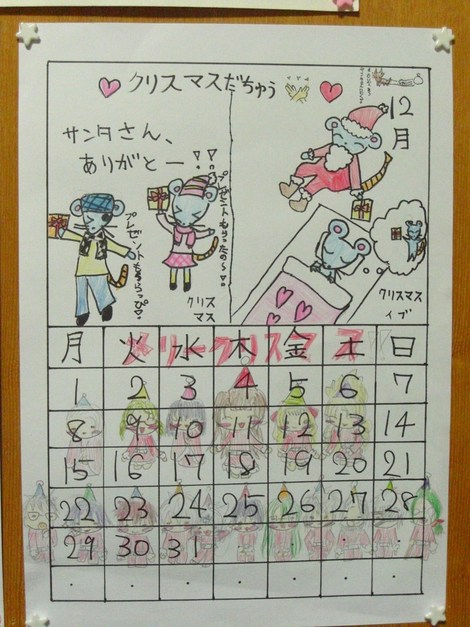 クリスマスだちゅう
サンタさん、
ありがとー!!
プレゼントもらっぴ♡
プレゼントもらったの〜♡
クリス
マス
12
月
クリスマス
イブ
メリークリスマス!!
月 火 水 木 金 土 日
1 2 3 4 5 6 7
8 9 10 11 12 13 14
15 16 17 18 19 20 21
22 23 24 25 26 27 28
29 30 31